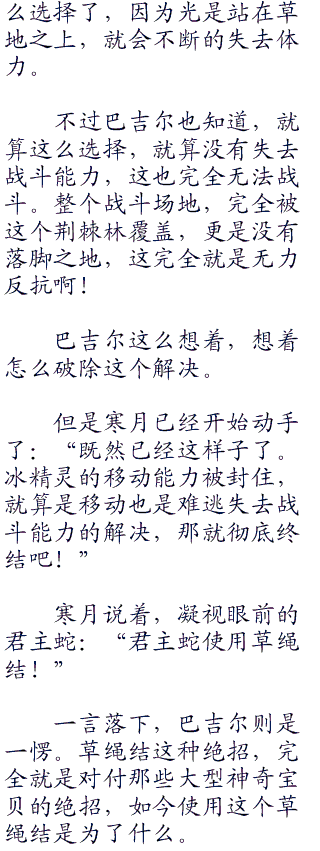 么选择了，因为光是站在草
地之上，就会不断的失去体
力。
不过巴吉尔也知道，就
算这么选择，就算没有失去
战斗能力，这也完全无法战
斗。整个战斗场地，完全被
这个荆棘林覆盖，更是没有
落脚之地，这完全就是无力
反抗啊！
巴吉尔这么想着，想着
怎么破除这个解决。
但是寒月已经开始动手
了：“既然已经这样子了。
冰精灵的移动能力被封住，
就算是移动也是难逃失去战
斗能力的解决，那就彻底终
结吧！”
寒月说着，凝视眼前的
君主蛇：“君主蛇使用草绳
结！”
一言落下，巴吉尔则是
一愣。草绳结这种绝招，完
全就是对付那些大型神奇宝
贝的绝招，如今使用这个草
绳结是为了什么。